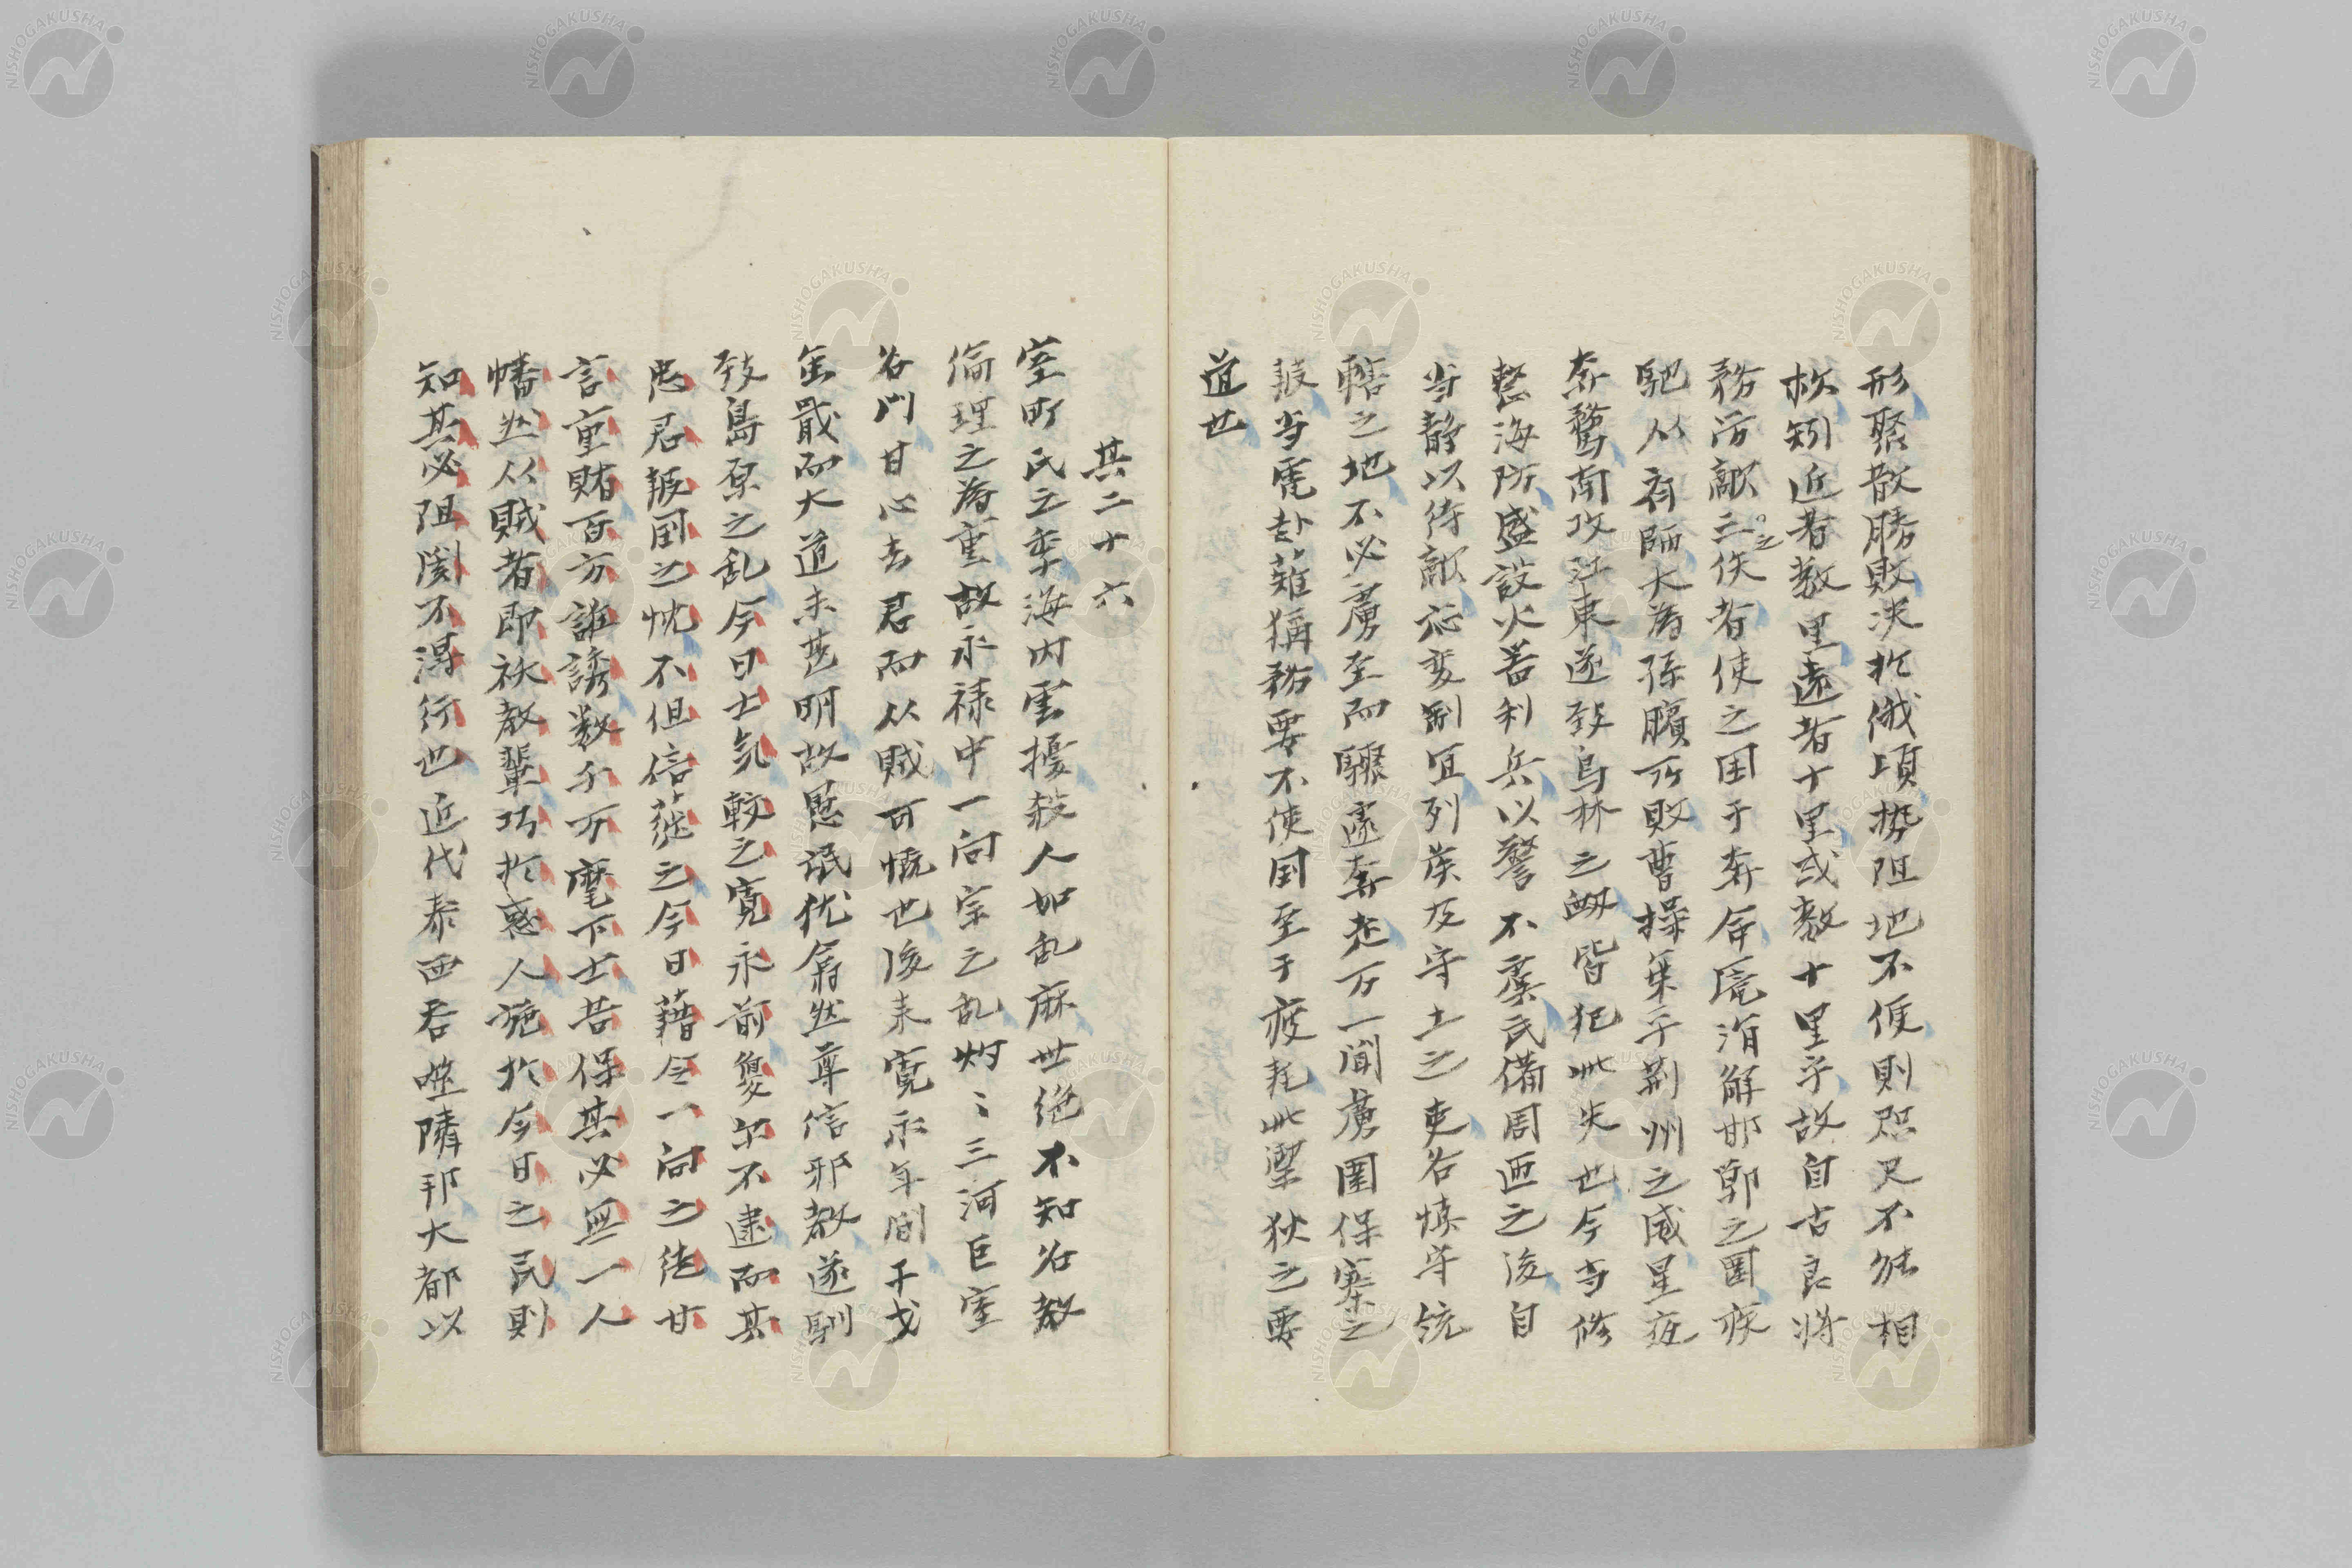 形聚散勝敗决於俄頃勢阻地不便則咫尺不能相
救矧近者数里遠者十里或数十里乎故自古良将
務防敵之佚者使之困于奔命厖涓解邯鄲之圍疾
馳以有師大為孫臏所敗曹操乗乎荊州之威星夜
奔騖南攻江東遂致烏林之衂皆犯此失也今当修
整海防盛設火器利兵以警不虞民備周匝之後自
当静以待敵応変制宜列侯及守土之吏各慎守統
轄之地不必虜至而驟遽奔走万一聞虜圍保寨之
報当電赴難猶務要不使困至于疲耗此禦狄之要
道也
其二十六
室町氏之季海内雲擾殺人如乱麻世絶不知名教
倫理之為重故永禄中一向宗之乱灼〻三河巨室
名門甘心去君而从賊可慨也後来寛永年間干戈
缶戢而大道未甚明故愚氓猶翕然尊信邪教遂馴
致島原之乱今日士気較之寛永前敻尔不逮而其
忠君報国之忱不但信蓰之今日藉令一向之徒甘
言重賂百方誰誘数千万麾下士吾保其必無一人
幡然从賊者即祅教輩巧於惑人施於今日之民則
知其必阻閡不得行也近代泰西呑噬隣邦大都以